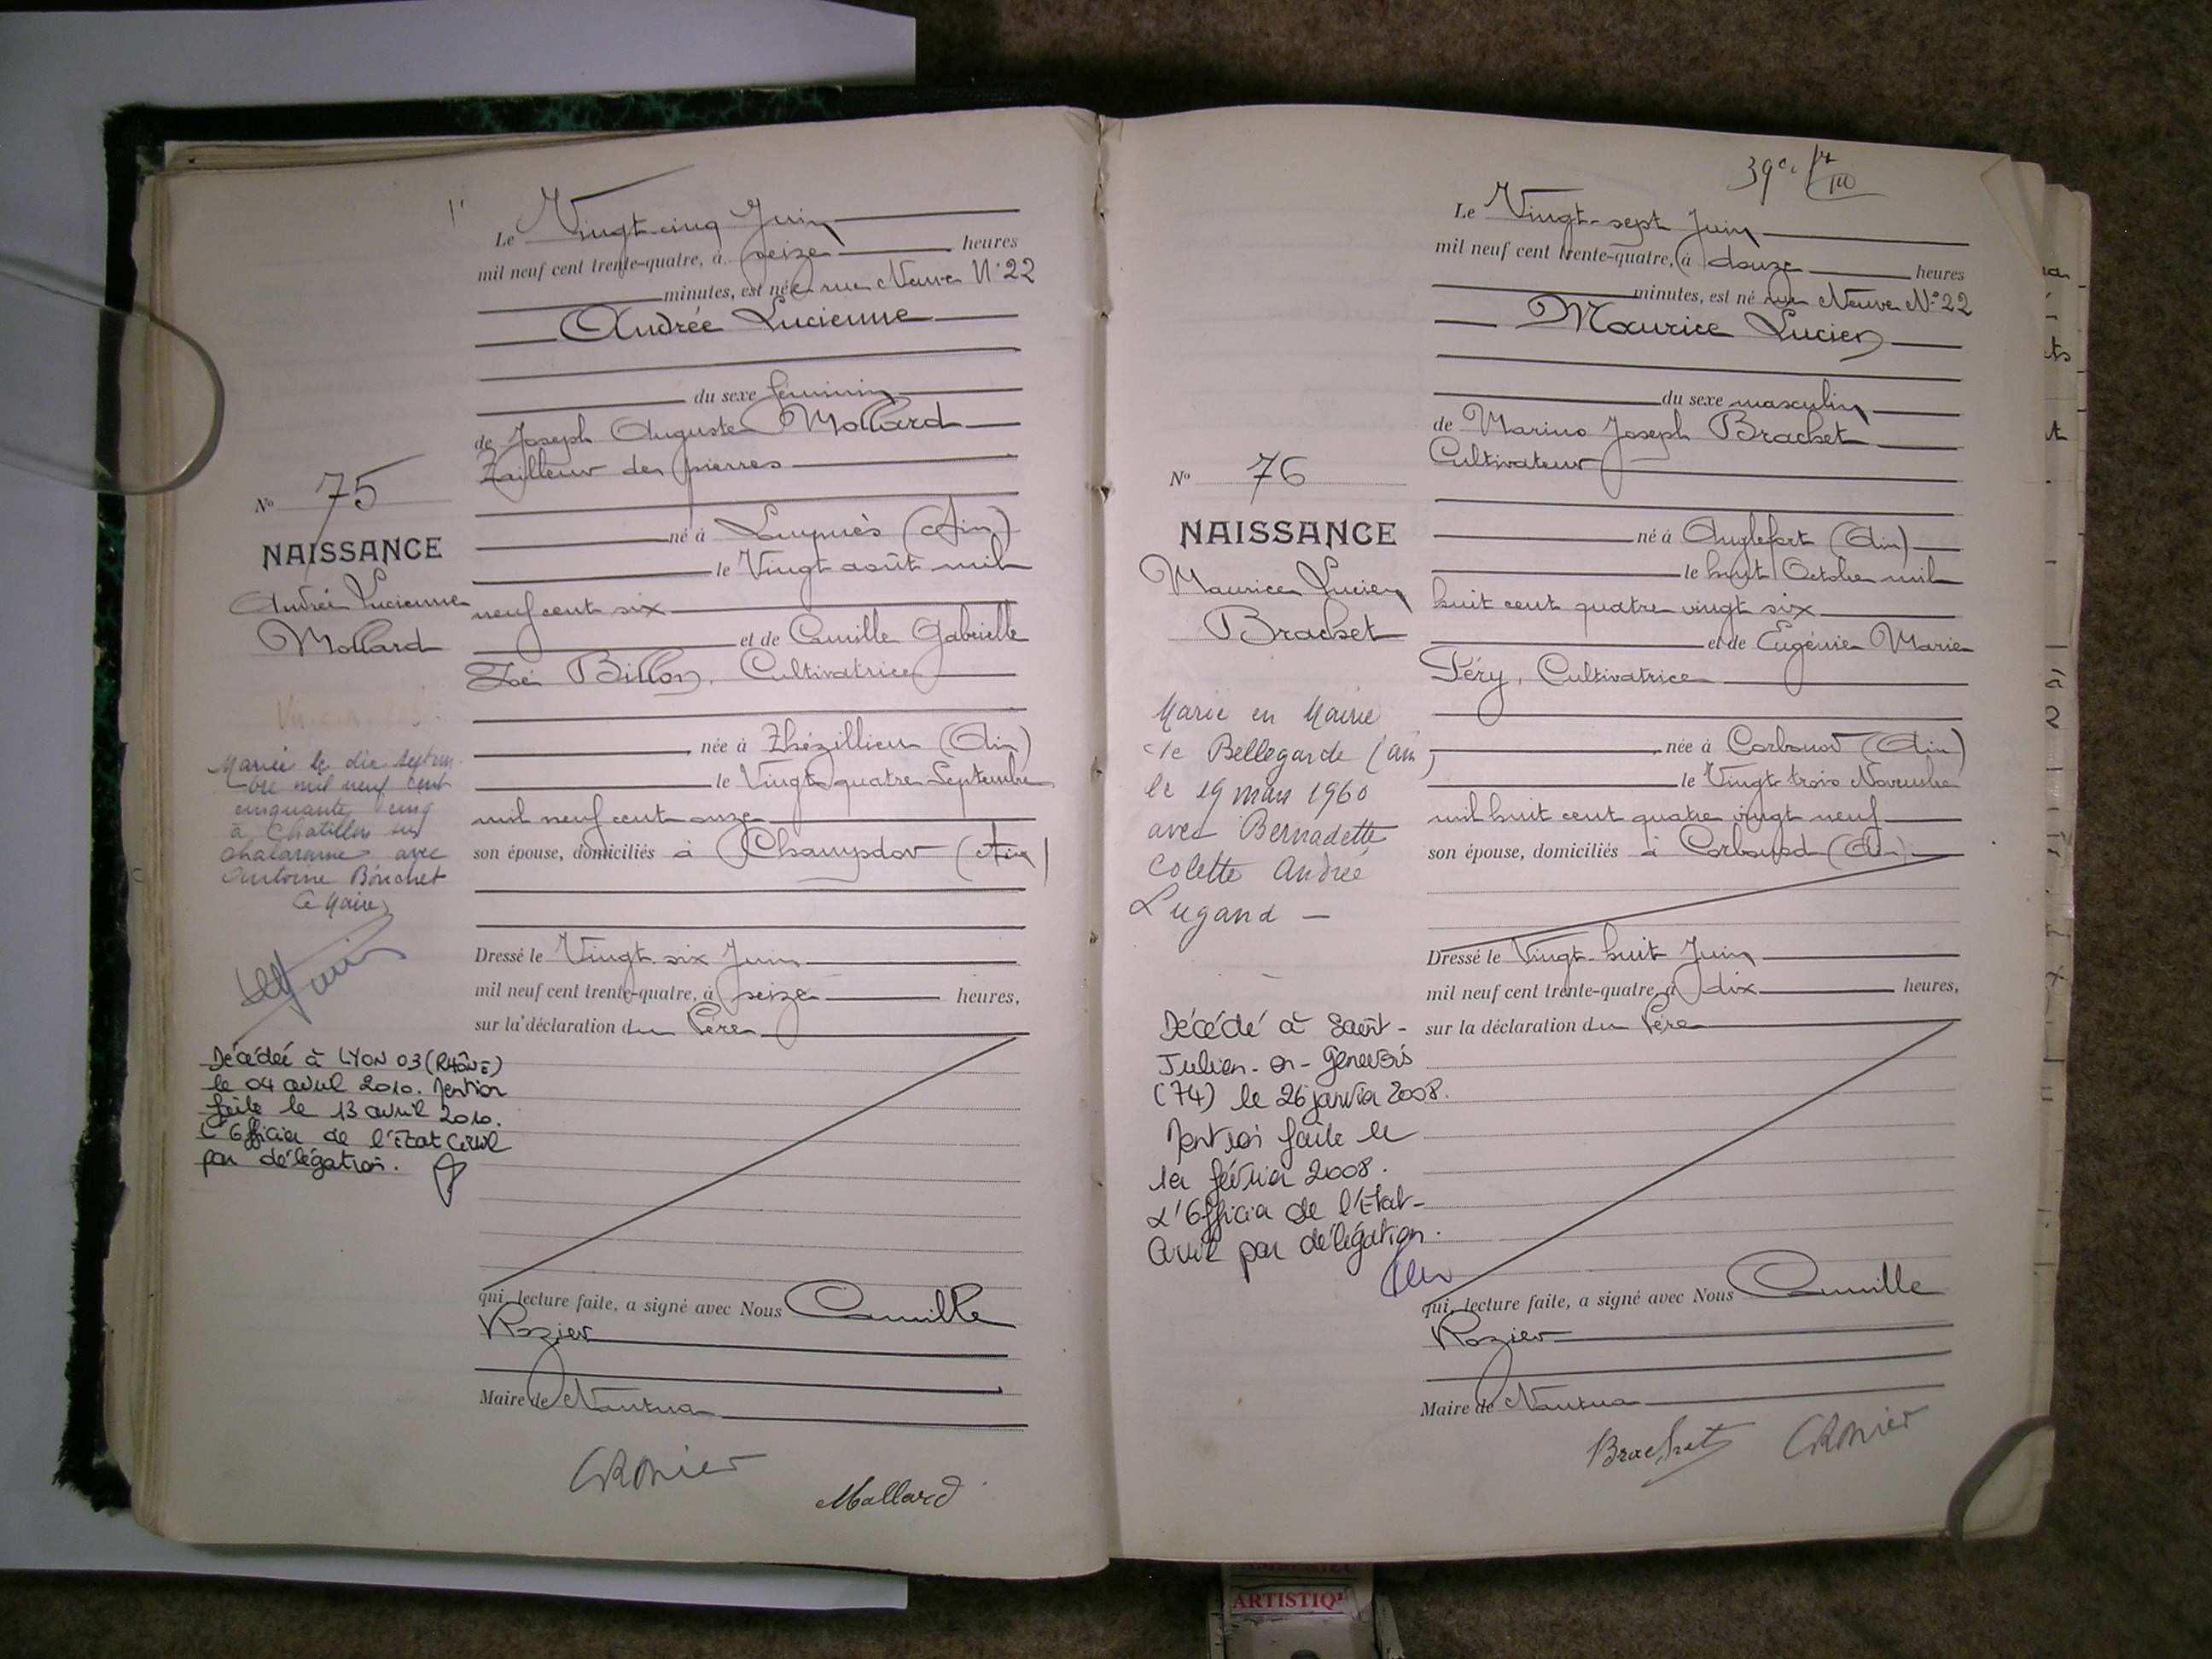 Le Vingt-cinq Juin
mil neuf cent trente-quatre, à seize heures
minutes, est née rue Neuve N°22
Andrée Lucienne
du sexe féminin
de Joseph Auguste Mollard
Tailleur de pierres
né à (Ain)
le Vingt août mil
neuf cent six
et de Camille Gabrielle
Zoé Billon, Cultivatrice
née à Thézillieu (Ain)
le Vingt quatre Septembre
mil neuf cent onze
son épouse, domiciliés à Champdor (Ain)
Dressé le Vingt-six Juin
mil neuf cent trente-quatre, à seize heures,
sur la déclaration du Père
qui, lecture faite, a signé avec Nous Camille
Rozier
Maire de Nantua
CRozier
Mollard
No 75
NAISSANCE
Andrée Lucienne
Mollard
Mariée le dix septem-
bre mil neuf cent
cinquante cinq
à Chatillon sur
chalaronne avec
Antoine Bouchet
Le Maire
Décédée à LYON 03 (RHÔNE)
le 04 avril 2010. Mention
faite le 13 avril 2010.
L'Officier de l'Etat Civil
par délégation.
39
Le Vingt-sept Juin
mil neuf cent trente-quatre, à douze heures
minutes, est né rue Neuve N°22
Maurice Lucien
du sexe masculin
de Marius Joseph Brachet
Cultivateur
né à Anglefort (Ain)
le huit Octobre mil
huit cent quatre vingt six
et de Eugénie Marie
Péry, Cultivatrice
née à Corbonod (Ain)
le Vingt trois Novembre
mil huit cent quatre vingt neuf
son épouse, domiciliés à Corbonod (Ain)
Dressé le Vingt-huit Juin
mil neuf cent trente-quatre, à dix heures,
sur la déclaration du Père
qui, lecture faite, a signé avec Nous Camille
Rozier
Maire de Nantua
Brachet CRozier
No 76
NAISSANCE
Maurice Lucien
Brachet
Marié en Mairie
de Bellegarde (ain)
le 19 mars 1960
avec Bernadette
Colette Andrée
Lugand —
Décédé à Saint-
Julien-en-Genevois
(74) le 26 janvier 2008.
Mention faite le
1er février 2008.
L'Officier de l'Etat-
Civil par délégation.
ARTISTIQ